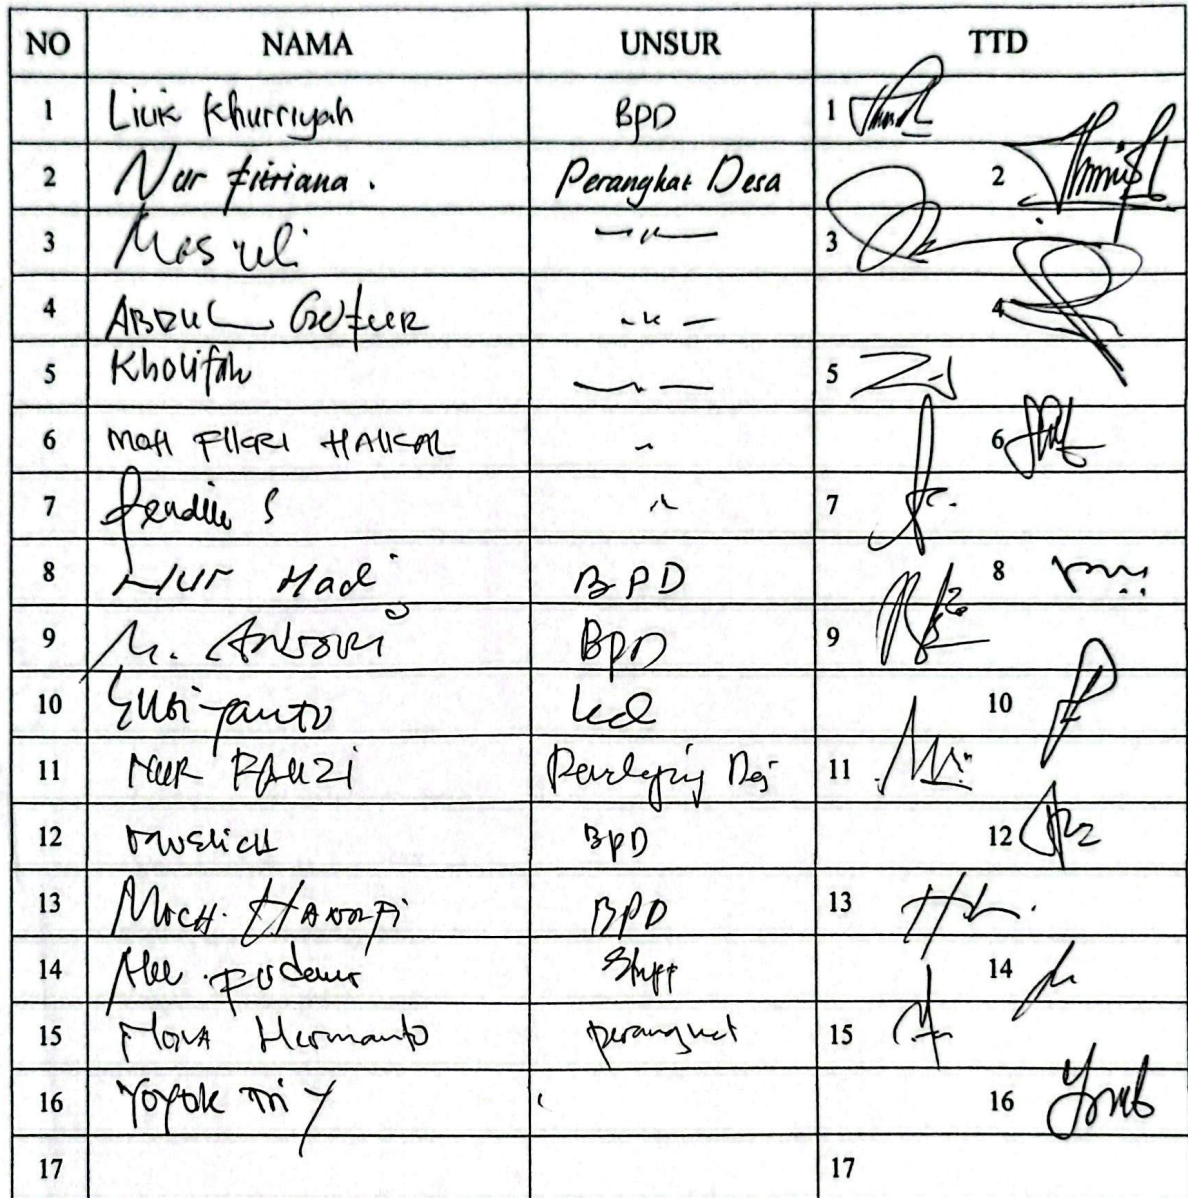 NO NAMA UNSUR TTD
1 Lilik Khurriyah BPD 1
2 Nur Fitriana. Perangkat Desa 2
3 Mas'uli -"- 3
4 ABDUL GOFUR -"- 4
5 Kholifah -"- 5
6 MOH FIKRI HAIKAL " 6
7 S " 7
8 Nur Hadi BPD 8
9 M. ANSORI BPD 9
10 10
11 NUR FAUZI 11
12 MUSLICH BPD 12
13 MOCH. HANAFI BPD 13
14 Staff 14
15 Hermanto perangkat 15
16 Yoyok Tri Y 16
17 17